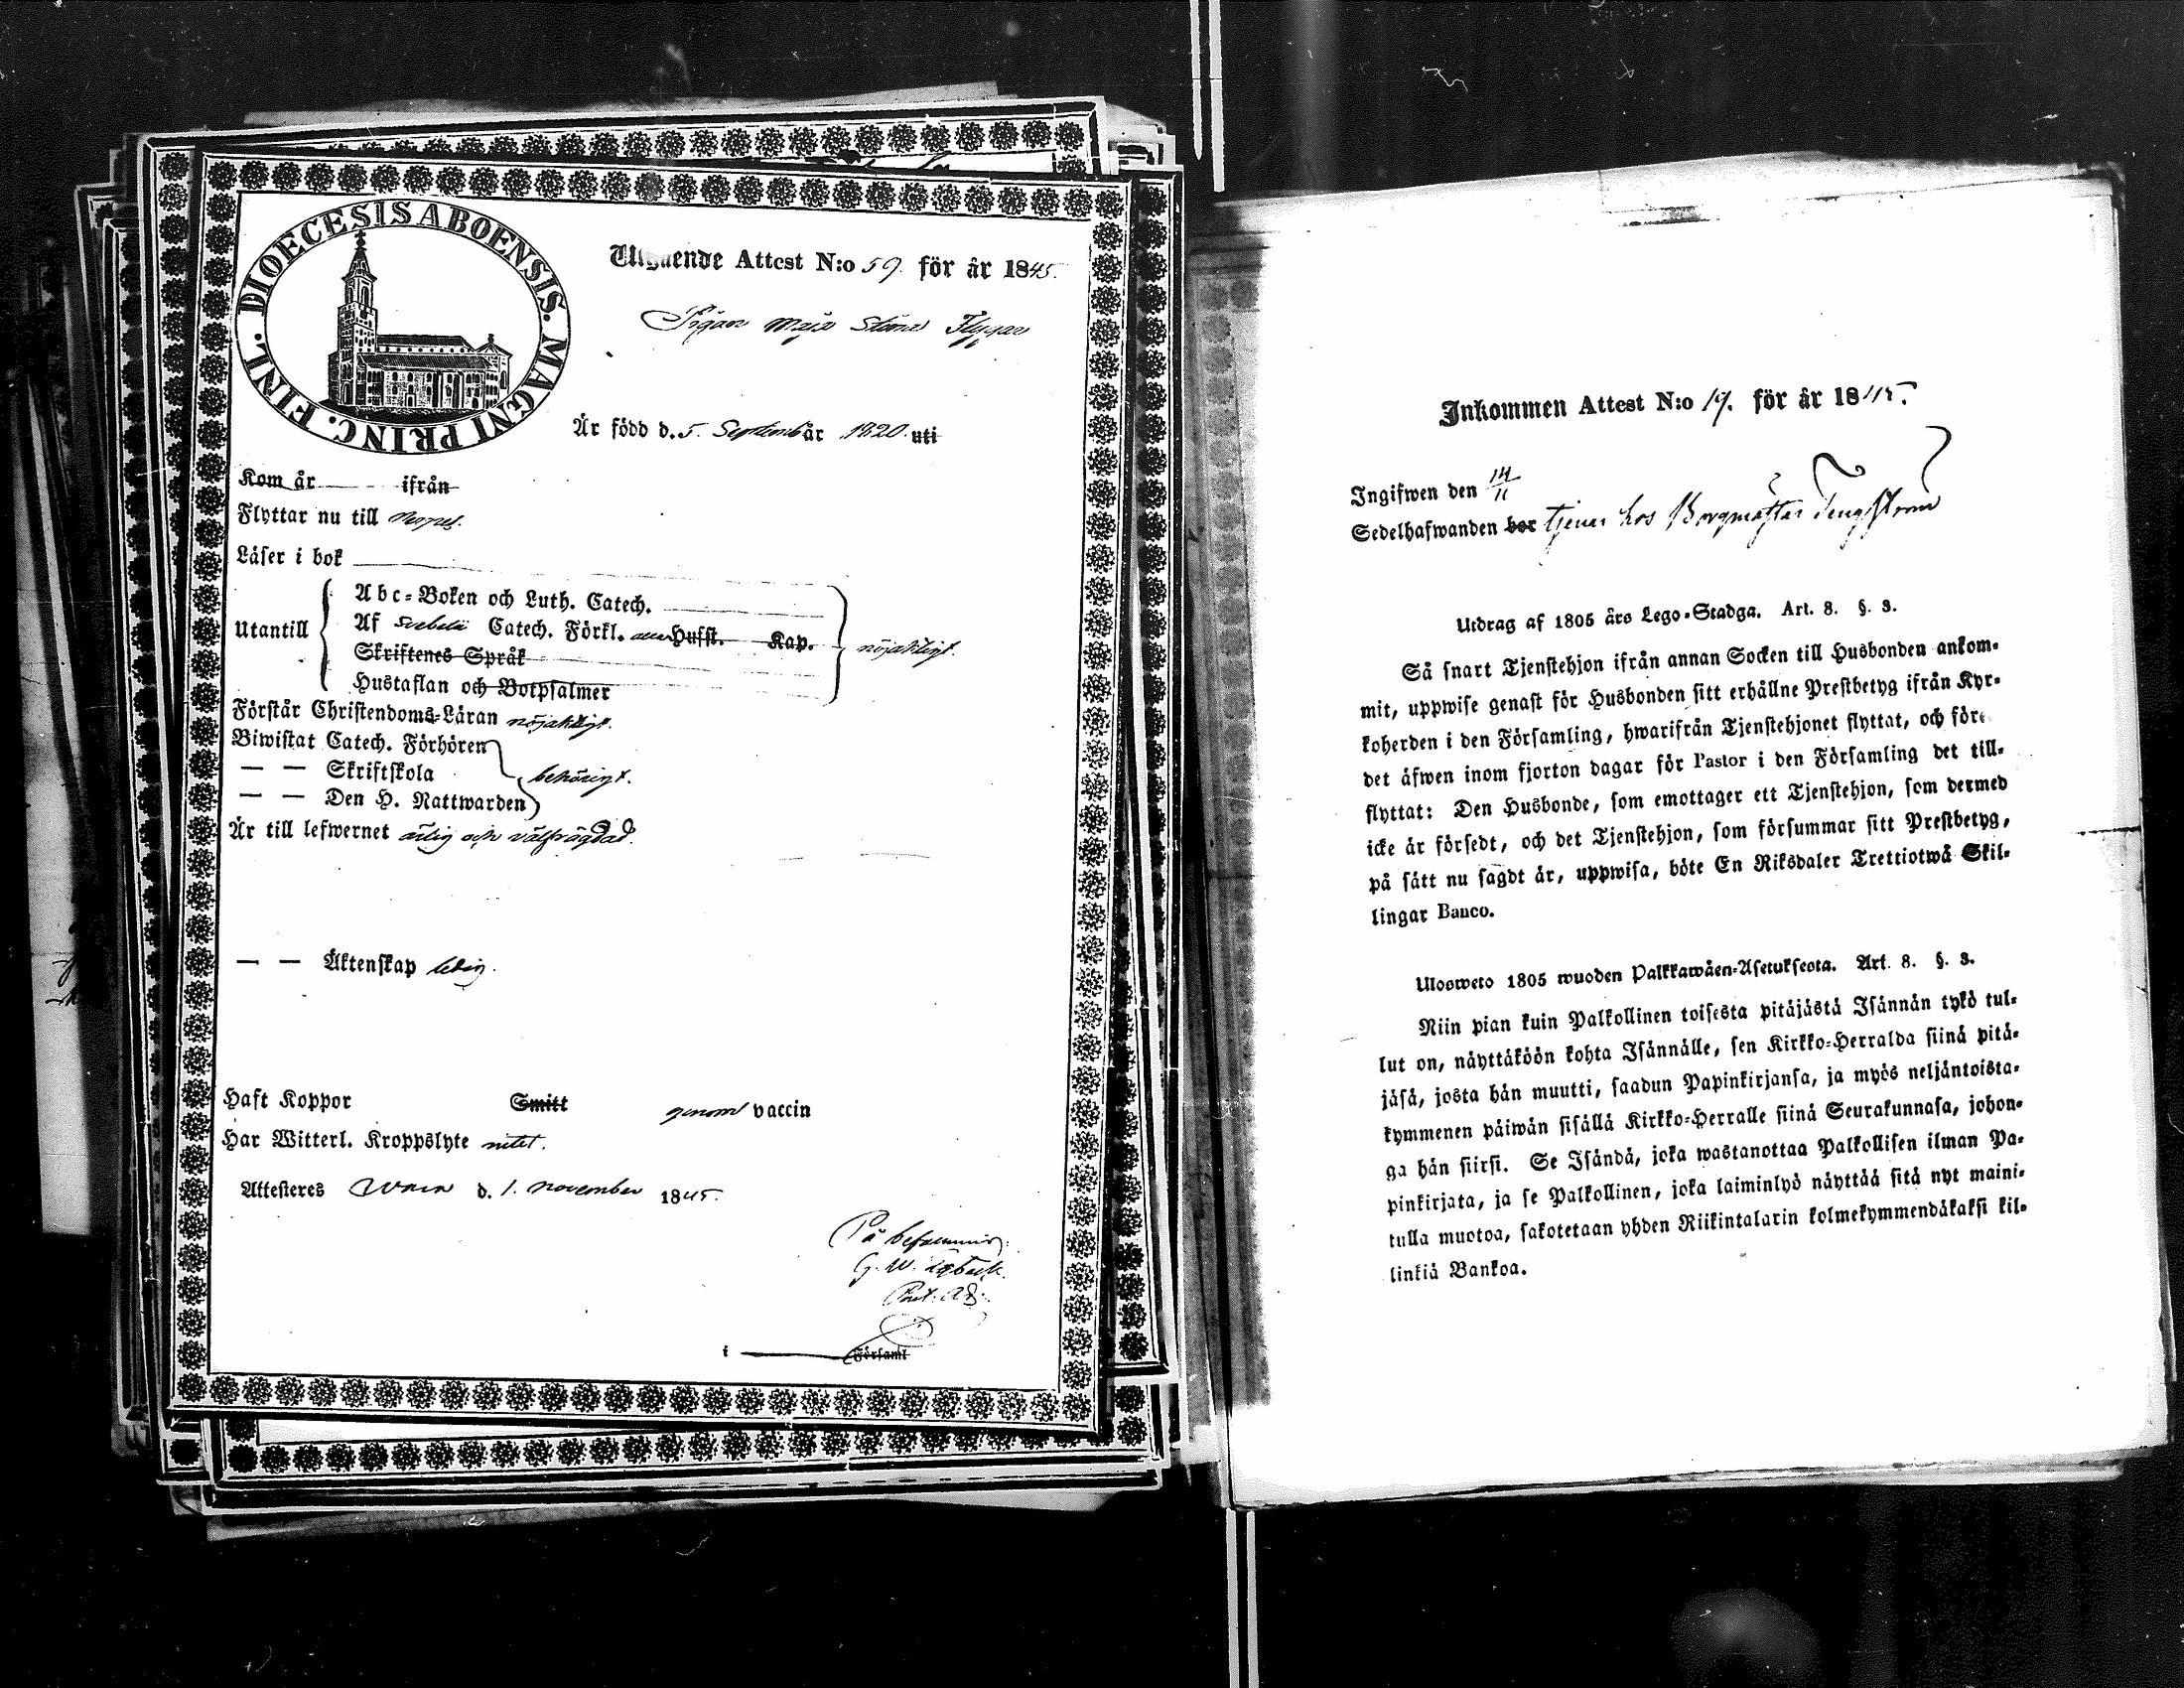 DIOECESIS ABOENSIS. MAGNI PRINC. FINL.
Utgående Attest N:o 59. för år 1845.
Pigan Maja Stina Flygar
Är född d. 5. Septemb är 1820. uti
Kom år ifrån
Flyttar nu till
Läser i bok
Utantill
Abc-Boken och Luth. Catech.
Af Svebelii Catech. Förkl. Husst. Kap.
Skriftenes Språk
Hustaflan och Botpsalmer
nöjaktigt.
Förstår Christendoms-Läran nöjaktigt.
Biwistat Catech. Förhören
— — Skriftskola
— — Den H. Nattwarden
behörigt.
Är till lefwernet ärlig och välfrägdad.
— — Äktenskap ledig.
Haft Koppor Smitt genom vaccin
Har Witterl. Kroppslyte intet.
Attesteres d. 1. november 1845.
På befallning:
G. W.
i Församl
Inkommen Attest N:o 19. för år 1845.
Ingifwen den 14/11
Sedelhafwanden bor tjenar hos Borgmästar Tengström
Utdrag af 1805 års Lego-Stadga. Art. 8. §. 3.
Så snart Tjenstehjon ifrån annan Socken till Husbonden ankom-
mit, uppwise genast för Husbonden sitt erhållne Prestbetyg ifrån Kyr-
koherden i den Församling, hwarifrån Tjenstehjonet flyttat, och före
det äfwen inom fjorton dagar för Pastor i den Församling det till-
flyttat: Den Husbonde, som emottager ett Tjenstehjon, som dermed
icke är försedt, och det Tjenstehjon, som försummar sitt Prestbetyg,
på sätt nu sagdt är, uppwisa, böte En Riksdaler Trettiotwå Skil-
lingar Banco.
Ulosweto 1805 wuoden Palkkawäen-Asetuksesta. Art. 8. §. 3.
Niin pian kuin Palkollinen toisesta pitäjästä Isännän tykö tul-
lut on, näyttäköön kohta Isännälle, sen Kirkko-Herralda siinä pitä-
jäsä, josta hän muutti, saadun Papinkirjansa, ja myös neljäntoista-
kymmenen päiwän sisällä Kirkko-Herralle siinä Seurakunnasa, johon-
ga hän siirsi. Se Isändä, joka wastanottaa Palkollisen ilman Pa-
pinkirjata, ja se Palkollinen, joka laiminlyö näyttää sitä nyt maini-
tulla muotoa, sakotetaan yhden Riikintalarin kolmekymmendäkaksi kil-
linkiä Bankoa.